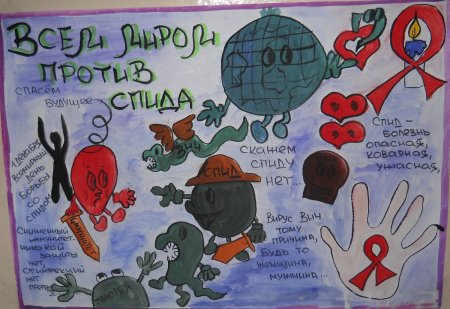 Всем миром
против
СПИДА
Спасём
будущее
1 декабря
Всемирный
день
борьбы
со
СПИДом
ВИЧ
Скажем
СПИДу
нет...
СПИД –
болезнь
опасная,
коварная,
ужасная,
СПИД
иммунитет
Вирус ВИЧ
тому
причина,
Будь то
женщина,
мужчина...
иммунитет-
никакой
защиты
нет
От инфекций
нет